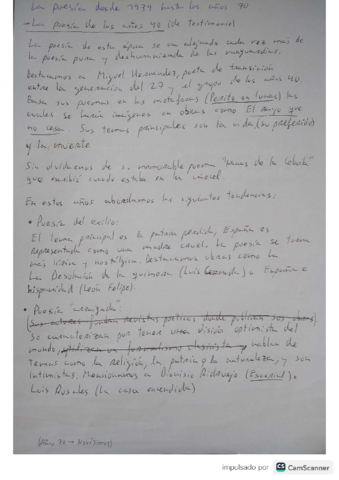 La poesía desde 1939 hasta los años 70
- La poesía de los años 40 (de testimonio)
La poesía de esta época se va alejando cada vez más de
la poesía pura y deshumanizada de las vanguardias.
Destacamos a Miguel Hernández, poeta de transición
entre la generación del 27 y el grupo de los años 40
Basa sus poemas en las metáforas (Perito en lunas) las
cuales se hacía imágenes en obras como El rayo que
no cesa. Sus temas principales son la vida (su preferido)
y la muerte
Sin olvidarnos de su memorable poema "nanas de la cebolla"
que escribió cuando estaba en la cárcel.
En estos años encontramos las siguientes tendencias:
• Poesía del exilio:
El tema principal es la patria perdida, España es
Representada como una madre cruel. La poesía se torna
más lírica y nostálgica. Destacamos obras como la
La Desolación de la quimera (Luis Cernuda) o España e
hispanidad (León Felipe).
• Poesía "arraigada":
(Sus autores fundan revistas poéticas donde publican sus obras)
Se caracterizan por tener una visión optimista del
mundo, utilizan un formalismo clasicista y hablan de
Temas como la religión, la patria o la naturaleza, y son
intimistas. Mencionamos a Dionisio Ridruejo (Escorial) o
Luis Rosales (La casa encendida)
impulsado por CS CamScanner